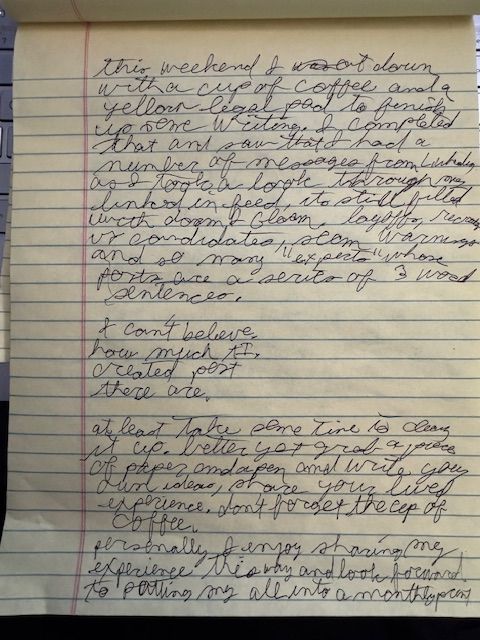 this weekend I sat down
with a cup of coffee and a
yellow legal pad to finish
up some writing. I completed
that and saw that I had a
number of messages from LinkedIn,
as I took a look through my
linked in feed, its still filled
with doom & gloom layoffs, recruiters
vs candidates, scam warnings
and so many "experts" whose
posts are a series of 3 word
sentences.
I can't believe
how much
created post
there are.
at least take some time to clean
it up. better yet grab a piece
of paper and a pen and write your
own ideas, share your lived
experience. dont forget the cup of
coffee.
personally I enjoy sharing my
experience this way and look forward
to putting my all into a monthly